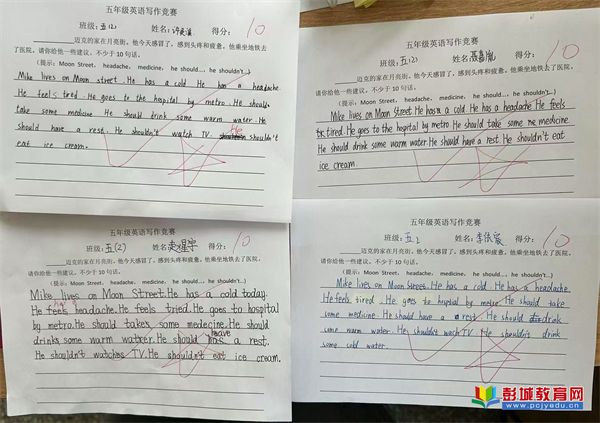 五年级英语写作竞赛
班级: 五(2) 姓名: 得分: 10
迈克的家在月亮街。他今天感冒了,感到头疼和疲惫。他乘坐地铁去
了医院。请你给他一些建议。不少于 10 句话。
(提示: Moon Street, headache, medicine, he should..., he shouldn't...)
Mike lives on Moon street. He has a cold. He has a headache.
He feels tired. He goes to the hospital by metro. He should
take some medicine. He should drink some warm water. He
should have a rest. He shouldn't watch TV. He shouldn't
eat ice cream.
五年级英语写作竞赛
班级: 五(2) 姓名: 得分: 10
迈克的家在月亮街。他今天感冒了,感到头疼和疲惫。他乘坐地铁去了医院。
请你给他一些建议。不少于 10 句话。
(提示: Moon Street, headache, medicine, he should..., he shouldn't...)
Mike lives on Moon Street. He has a cold. He has a headache. He feels
tired. He goes to the hospital by metro. He should take some medicine.
He should drink some warm water. He should have a rest. He shouldn't eat
ice cream.
五年级英语写作竞赛
班级: 五(2) 姓名: 得分: 10
迈克的家在月亮街。他今天感冒了,感到头疼和疲惫。他乘坐地铁去了医院。
请你给他一些建议。不少于 10 句话。
(提示: Moon Street, headache, medicine, he should..., he shouldn't...)
Mike lives on Moon Street. He has a cold today.
He headache. He feels tried. He goes to hospital
by metro. He should take some medecine. He should
drink some warm water. He should have a rest.
He shouldn't watch TV. He shouldn't eat ice cream.
五年级英语写作竞赛
班级: 五2 姓名: 李依宸 得分: 10
迈克的家在月亮街。他今天感冒了,感到头疼和疲惫。他乘坐地铁去了医院。
请你给他一些建议。不少于 10 句话。
(提示: Moon Street, headache, medicine, he should..., he shouldn't...)
Mike lives on Moon Street. He has a cold. He has a headache.
He feels tired. He goes to hospital by metro. He should take
some medicine. He should have a rest. He should drink
some warm water. He shouldn't wach TV. He shouldn't drink
some cold water.
彭城教育网
www.pcjyedu.cn